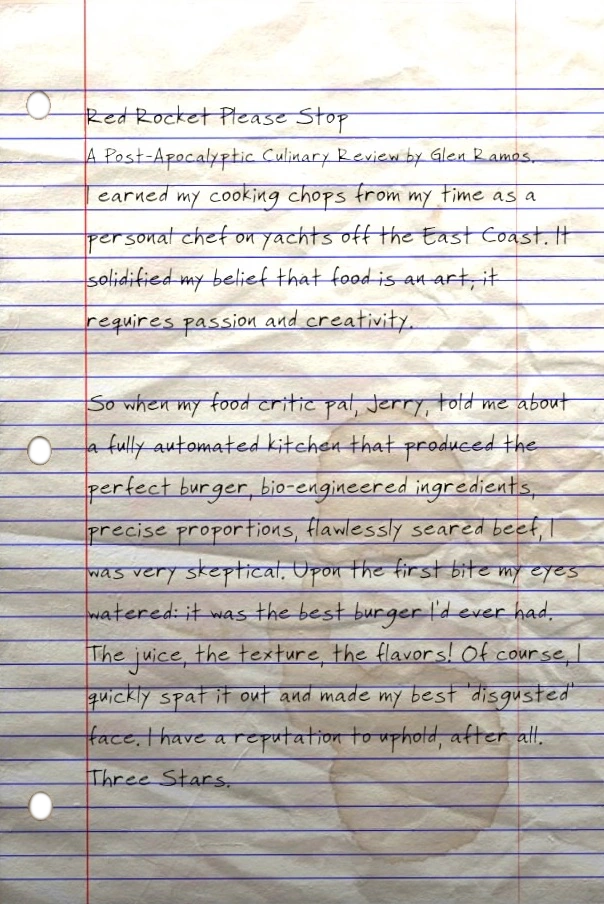 Red Rocket Please Stop
A Post-Apocalyptic Culinary Review by Glen Ramos.
I earned my cooking chops from my time as a
personal chef on yachts off the East Coast. It
solidified my belief that food is an art; it
requires passion and creativity.
So when my food critic pal, Jerry, told me about
a fully automated kitchen that produced the
perfect burger, bio-engineered ingredients,
precise proportions, flawlessly seared beef, I
was very skeptical. Upon the first bite my eyes
watered: it was the best burger I'd ever had.
The juice, the texture, the flavors! Of course, I
quickly spat it out and made my best 'disgusted'
face. I have a reputation to uphold, after all.
Three Stars.